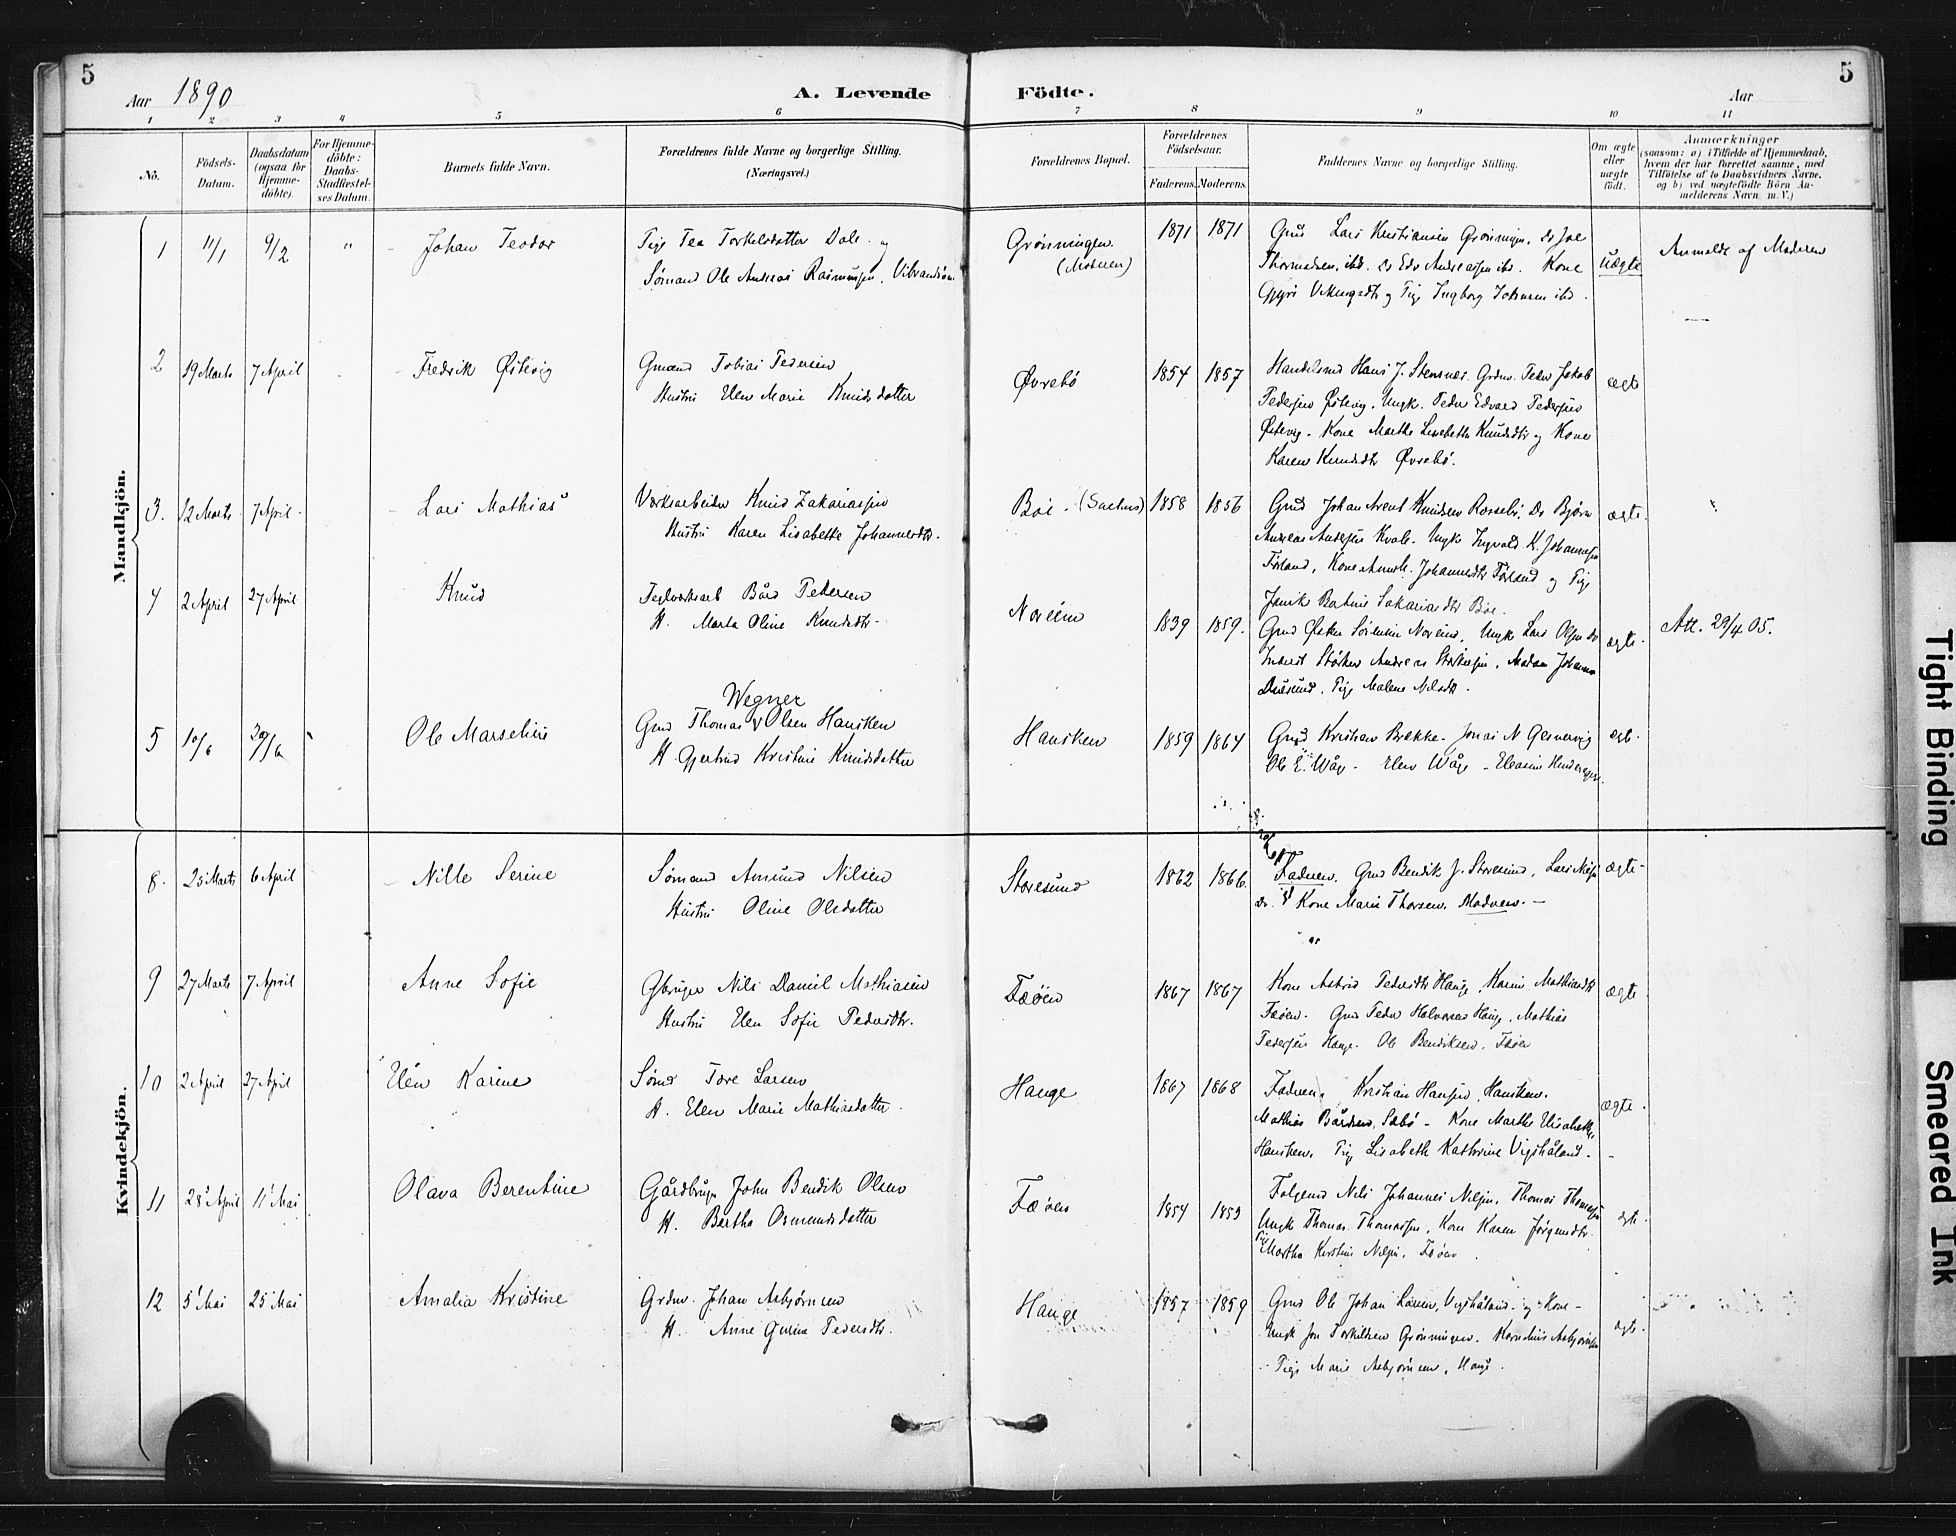 5
Aar 1890
A. Levende
Födte.
Aar
5
1 2 3 4 5 6 7 8 9 10 11
No.
Födsels-Datum.
Daabsdatum (ogsaa for Hjemme-döbte).
For Hjemme-döbte: Daabs-Stadfæstel-ses Datum.
Barnets fulde Navn.
Forældrenes fulde Navne og borgerlige Stilling. (Næringsvei.)
Forældrenes Bopæl.
Forældrenes Födselsaar.
Faderens. Moderens.
Faddernes Navne og borgerlige Stilling.
Om ægte eller uægte födt.
Anmærkninger
(saasom: a) i Tilfælde af Hjemmedaab,
hvem der har forrettet samme, med
Tilföielse af to Daabsvidners Navne.
og b) ved uægtefödte Börn An-
melderens Navn m. V.)
Mandkjön.
1 11/1 9/2 " Johan Teodor
Pige Tea Torkelsdatter Dale og
Sømand Ole Andreas Rasmussen, Vibrandsøen
Grønningen
(Moderen)
1871 1871
Gmd Lars Kristiansen Grønningen, do Joe
Thormodsen, ibd. do Edv Andreassen ibd. Kone
Vikingsdtr og Pige Ingborg Johnsen ibd.
Uægte
Anmeldt af Moderen
2 19 Marts 7 April Fredrik Østevig
Gmand Tobias Pedersen
Hustru Elen Marie Knudsdatter
Øvrebø
1854 1857
Handelsmd Hans J. Stensnæs. Grdmd. Peder Jakob
Pedersen Østevig. Ungk. Peder Edvard Pedersen
Østevig. Kone Marthe Lisebethe Knudsdtr og Kone
Karen Knudsdtr Øvrebø.
ægte
3. 12 Marts 7 April Lars Mathias
Værksarbeider Knud Zakariassen
Hustru Karen Lisabethe Johannesdtr.
Bøe
1858 1856
Gmd Johan Arent Knudsen Rossebø. Do Bjørn
Andreas Andersen Kvale. Ungk Ingvald K. Johannessen
Førland, Kone Johannesdtr Førland og Pige
Bertine Sakariasdtr Bøe.
ægte.
4 2 April 27 April Knud
Teglværksarb Bård Pedersen
H. Marta Oline Knudsdtr.
Noreim
1839 1859.
Gmd Sørensen Noreim, Ungk Lars Olsen do
Størker Andreas Størkersen, Madam Johanna
Pige Malene Nilsdtr.
ægte.
Att. 29/4 05.
5 10/6 29/6 Ole Marselius
Wegner
Gmd Thomas V Olsen Hansken
H. Gjertrud Kristine Knudsdatter
Hansken
1859 1864
Gmd Kristian Brekke. Jonas N Gesnervig
Ole E. Våge. Elen Våge
ægte.
Kvindekjön.
8. 25 Marts 6 April Nille Serine
Sømand Amund Nilsen
Hustru Oline Olsdatter
Storesund
1862 1866.
Faderen. Gmd Bendik J. Storesund, Lars Nilsen
do. Kone Marie Thorsen. Moderen. —
ægte
9 27 Marts 7 April Anne Sofie
Gbruger Nils Daniel Mathiasen
Hustru Elen Sofie Pedersdtr.
Fæøen
1867 1867
Kone Astrid Pedersdtr Hauge, Karen Mathiasdtr
Fæøen. Gmd Peder Halvorsen Hauge, Mathias
Pedersen Hauge. Ole Bendiksen, Fæøen
ægte
10 2 April 27 April Elen Karine
Sømd Tore Larsen
H. Elen Marie Mathiasdatter.
Hauge
1867 1868
Faderen, Kristian Hansen, Hansken.
Mathias Bårdsen, Sæbø – Kone Marthe Elisabethe
Hansken, Pige Lisabeth Kathrine Vigshåland.
ægte.
11 28 April 11 Mai Olava Berentine
Gårdbruger John Bendik Olsen
H. Bertha Osmundsdatter
Fæøen
1854 1853
Nils Johannes Nilsen, Thomas Thomassen
Ungk Thomas Thomassen, Kone Karen Jørgensdtr
Pige Martha Kirstine Nilsen. Fæøen
ægte.
12 5 Mai 25 Mai Amalia Kristine
Grdm. Johan Asbjørnsen
H. Anne Gurine Pedersdtr.
Hauge
1857 1859
Gmd Ole Johan Larsen, Vigshåland – og Kone –
Ungk Jon Torkildsen Grønningen. Kornelius Asbjørnsen
Pige Marie Asbjørnsen, Hauge.
ægte.
Tight Binding
Smeared Ink